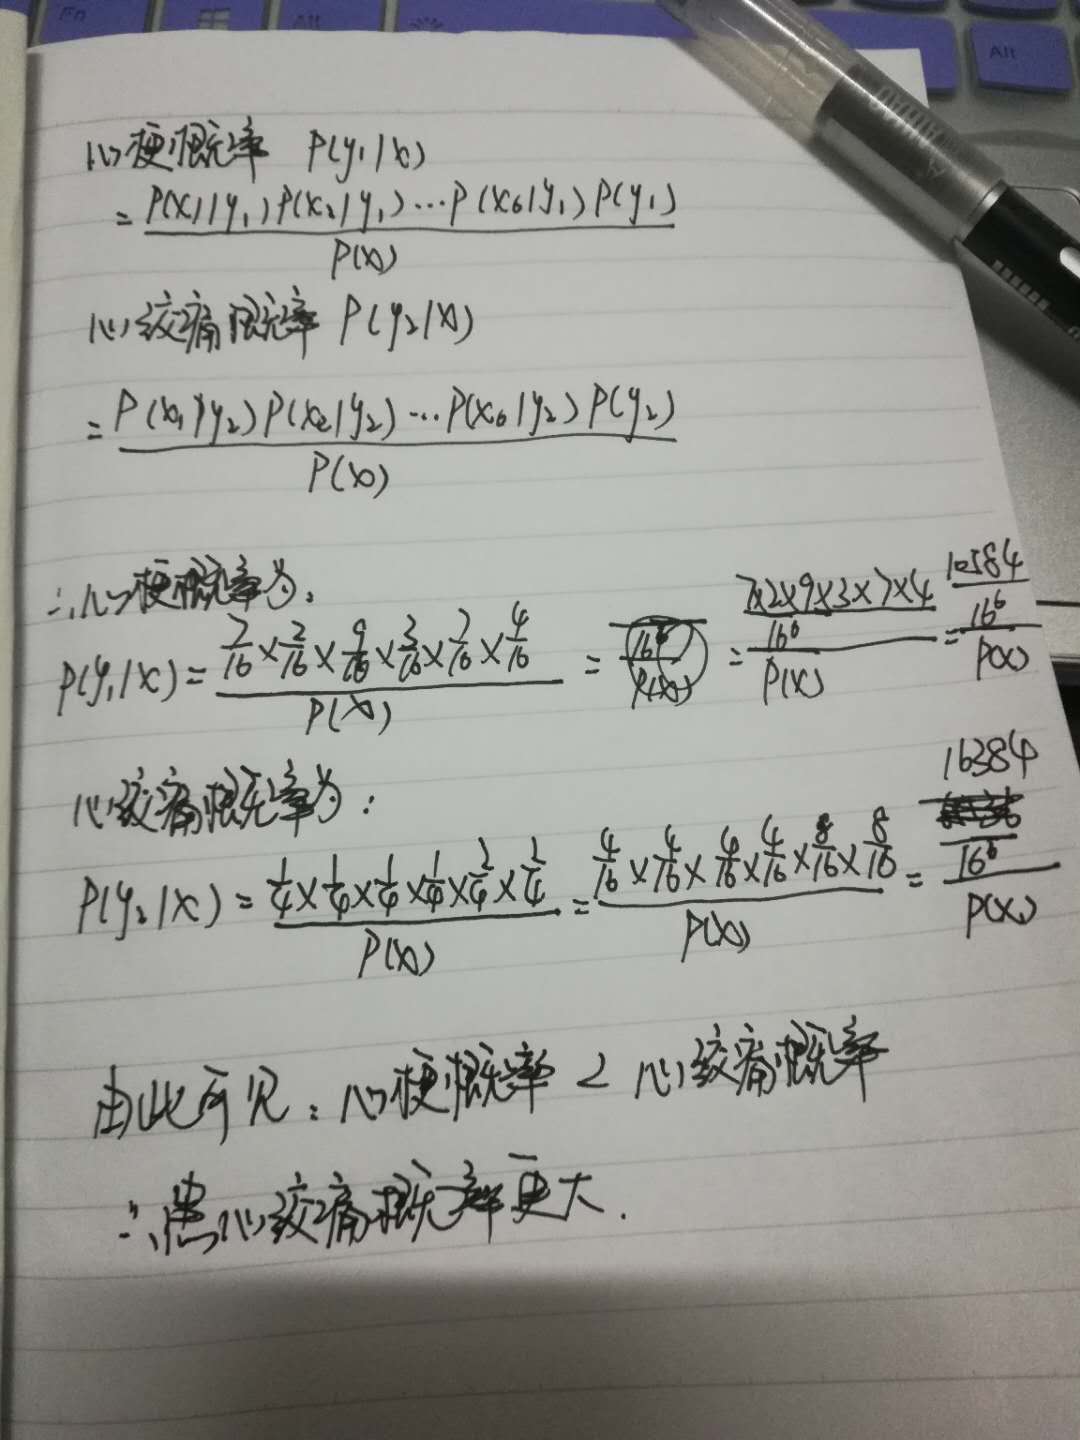 Fn
Alt
Alt
心梗概率 P(y₁|x)
= P(x₁|y₁)P(x₂|y₁)…P(x₆|y₁)P(y₁) / P(x)
心绞痛概率 P(y₂|x)
= P(x₁|y₂)P(x₂|y₂)…P(x₆|y₂)P(y₂) / P(x)
∴心梗概率为:
P(y₁|x) = 7/16 × 2/16 × 9/16 × 3/16 × 7/16 × 4/16 / P(x) = 16⁶ / P(x) = 7×2×9×3×7×4 / 16⁶ / P(x) = 10584 / 16⁶ / P(x)
心绞痛概率为:
P(y₂|x) = 1/4 × 1/4 × 1/4 × 1/4 × 2/4 × 2/4 / P(x) = 4/16 × 4/16 × 4/16 × 4/16 × 8/16 × 8/16 / P(x) = 16384 / 16⁶ / P(x)
由此可见:心梗概率 < 心绞痛概率
∴患心绞痛概率更大.